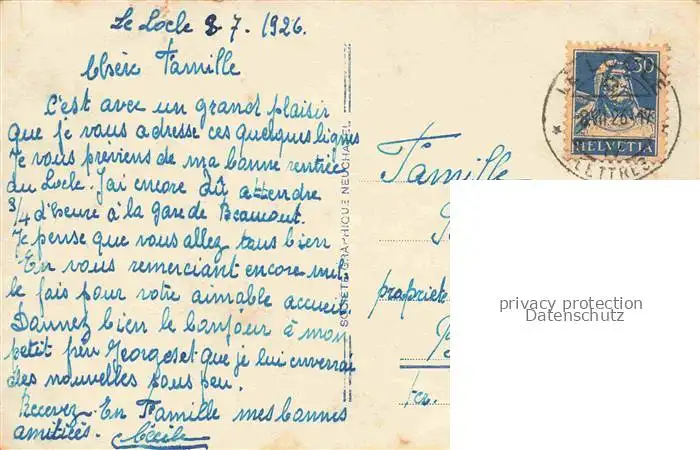 Le Locle 8 7. 1926.
Chère Famille
C'est avec un grand plaisir
que je vous adresse ces quelques lignes
Je vous préviens de ma bonne rentrée
du Locle. J'ai encore dû attendre
3/4 d'heure à la gare de Beaucourt.
Je pense que vous allez tous bien
En vous remerciant encore mille
le fois pour votre aimable accueil.
Donnez bien le bonjour à mon
petit frèu Georges et que je lui enverrai
des nouvelles sous peu.
Recevez. En Famille mes bonnes
amitiés. Cécile
SOCIÉTÉ GRAPHIQUE NEUCHATEL
30
HELVETIA
LETTRES
Famille
propriete
privacy protection
Datenschutz